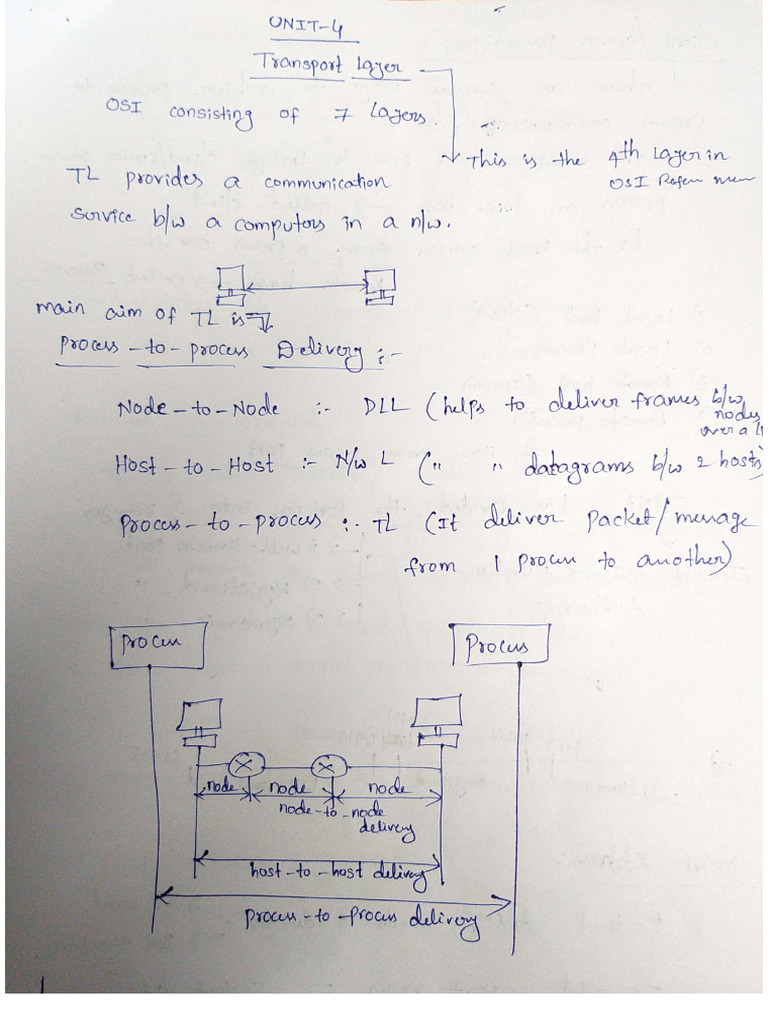 UNIT-4
Transport Layer
OSI consisting of 7 Layers.
This is the 4th Layer in
OSI
TL provides a communication
service b/w a computers in a n/w.
main aim of TL is
process-to-process Delivery:-
Node-to-Node :- DLL (helps to deliver frames b/w
nodes
over a
Host-to-Host :- N/w L (" " datagrams b/w 2 hosts)
Process-to-process :- TL (It deliver packet/message
from 1 process to another)
Process Process
node node node
node-to-node
delivery
host-to-host delivery
process-to-process delivery